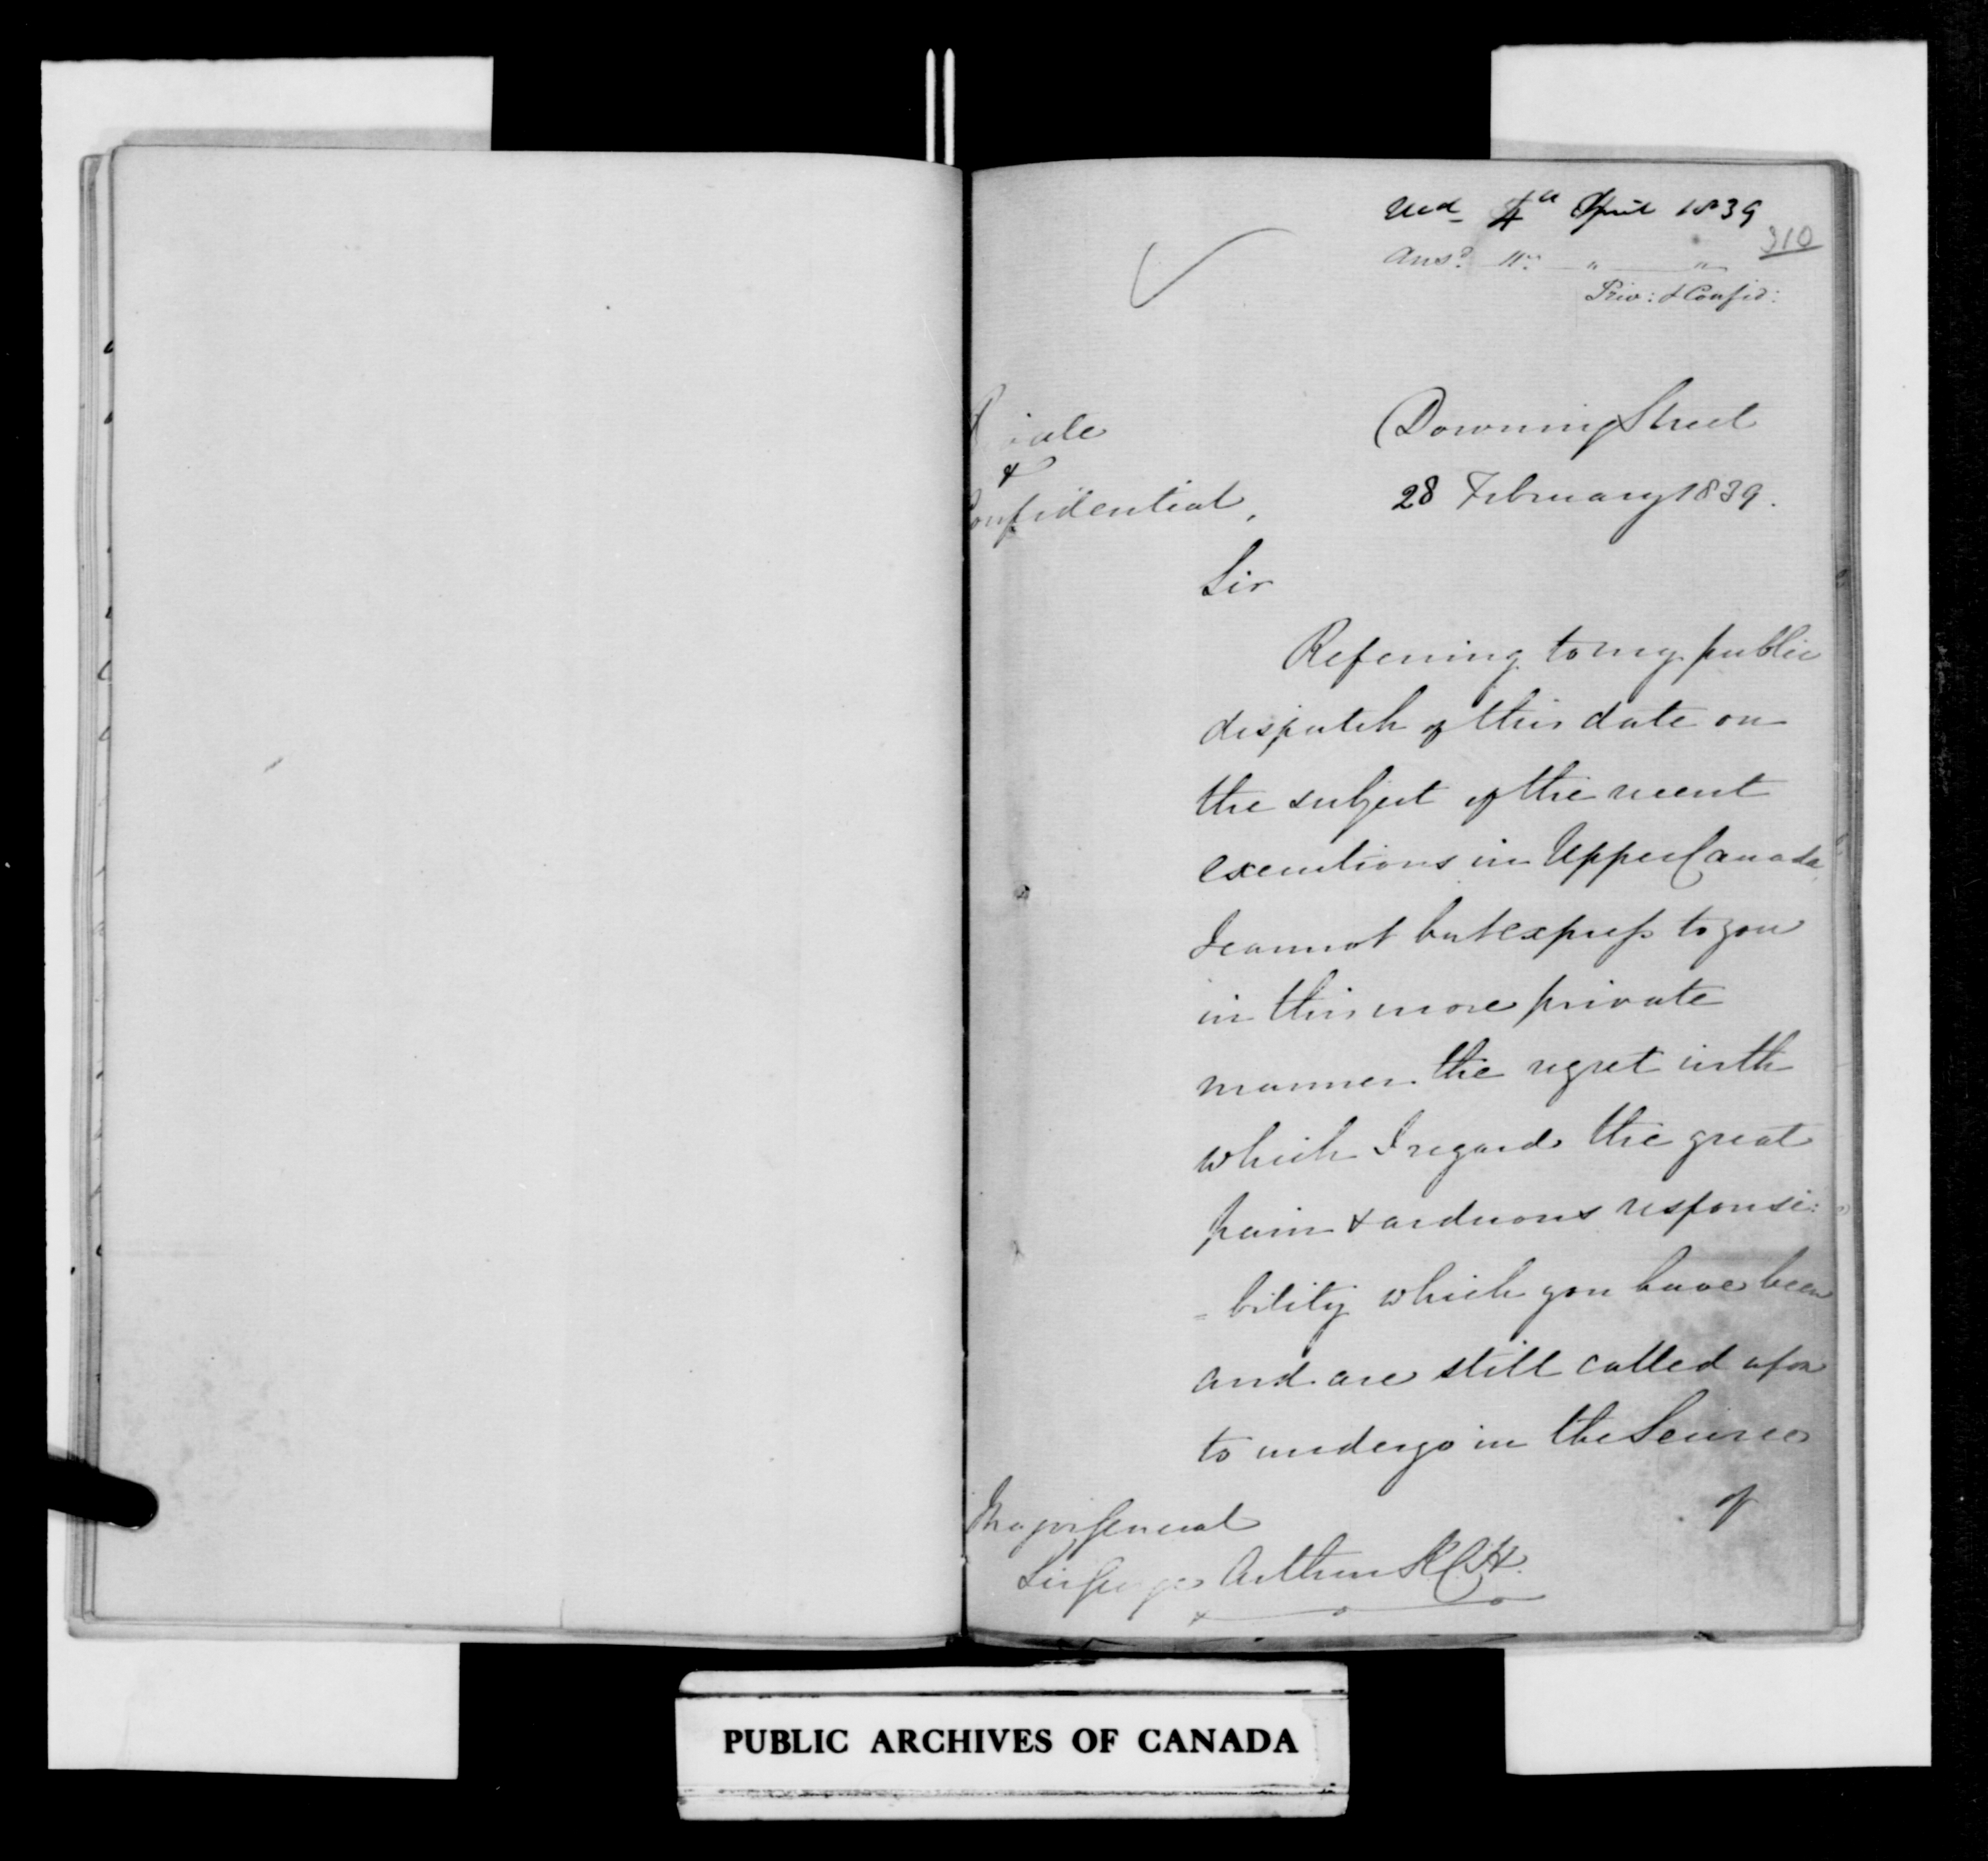 Recd 4th April 1839
310
Ansd. 11th " "
Priv: & Confid:
Private
&
Confidential,
Downing Street
28 February 1839.
Sir
Referring to my public
dispatch of this date on
the subject of the recent
executions in Upper Canada,
I cannot but express to you
in this more private
manner the regret with
which I regard the great
pain & arduous responsi:
-bility which you have been
and are still called upon
to undergo in the Service
of
Major General
Sir George Arthur K.C.H.
PUBLIC ARCHIVES OF CANADA